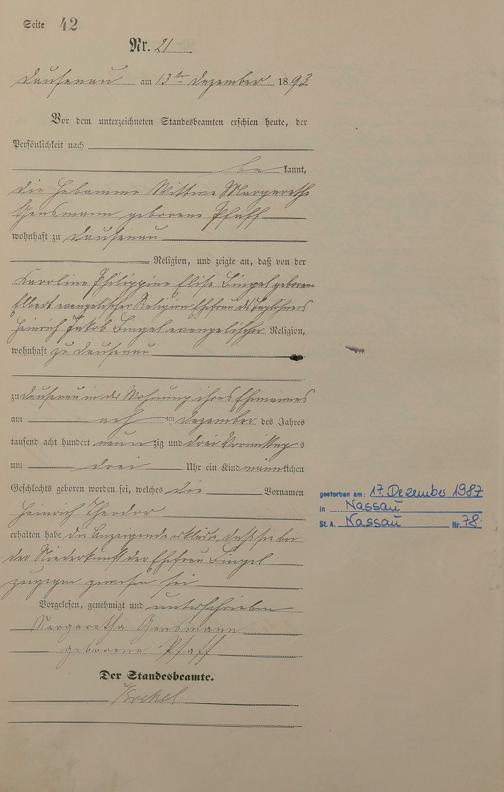 Seite 42
Nr. 21
Dausenau am 13ten Dezember 1893
Vor dem unterzeichneten Standesbeamten erschien heute, der
Persönlichkeit nach
be kannt,
die Hebamme Wittwe Margarethe
geborene Pfaff
wohnhaft zu Dausenau
Religion, und zeigte an, daß von der
Karoline Philippine Elise Bingel geborene
Elbert evangelischer Religion Ehefrau des Taglöhners
Heinrich Jakob Bingel evangelischer Religion,
wohnhaft zu Dausenau
zu Dausenau in der Wohnung ihres Ehemannes
am Dezember des Jahres
tausend acht hundert neun zig und drei Vormittags
um drei Uhr ein Kind männlichen
Geschlechts geboren worden sei, welches die Vornamen
Heinrich Theodor
erhalten habe die Anzeigende erklärte, daß sie bei
der Niederkunft der Ehefrau Bingel
zugegen gewesen sei
Vorgelesen, genehmigt und unterschrieben
Margaretha
geborene Pfaff
Der Standesbeamte.
gestorben am: 17. Dezember 1987
in Nassau
St. A. Nassau Nr. 78